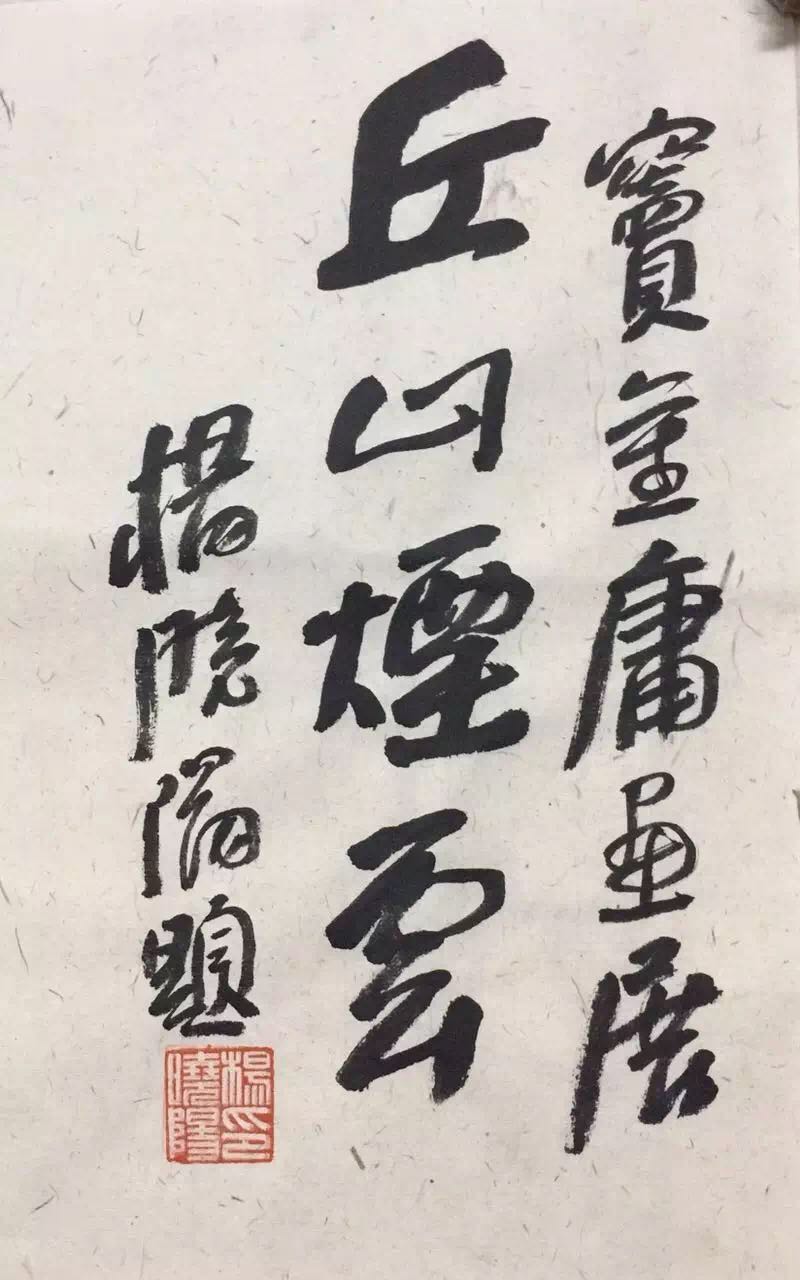 竇金庸畫展
丘山煙雲
楊曉陽題
楊曉陽印